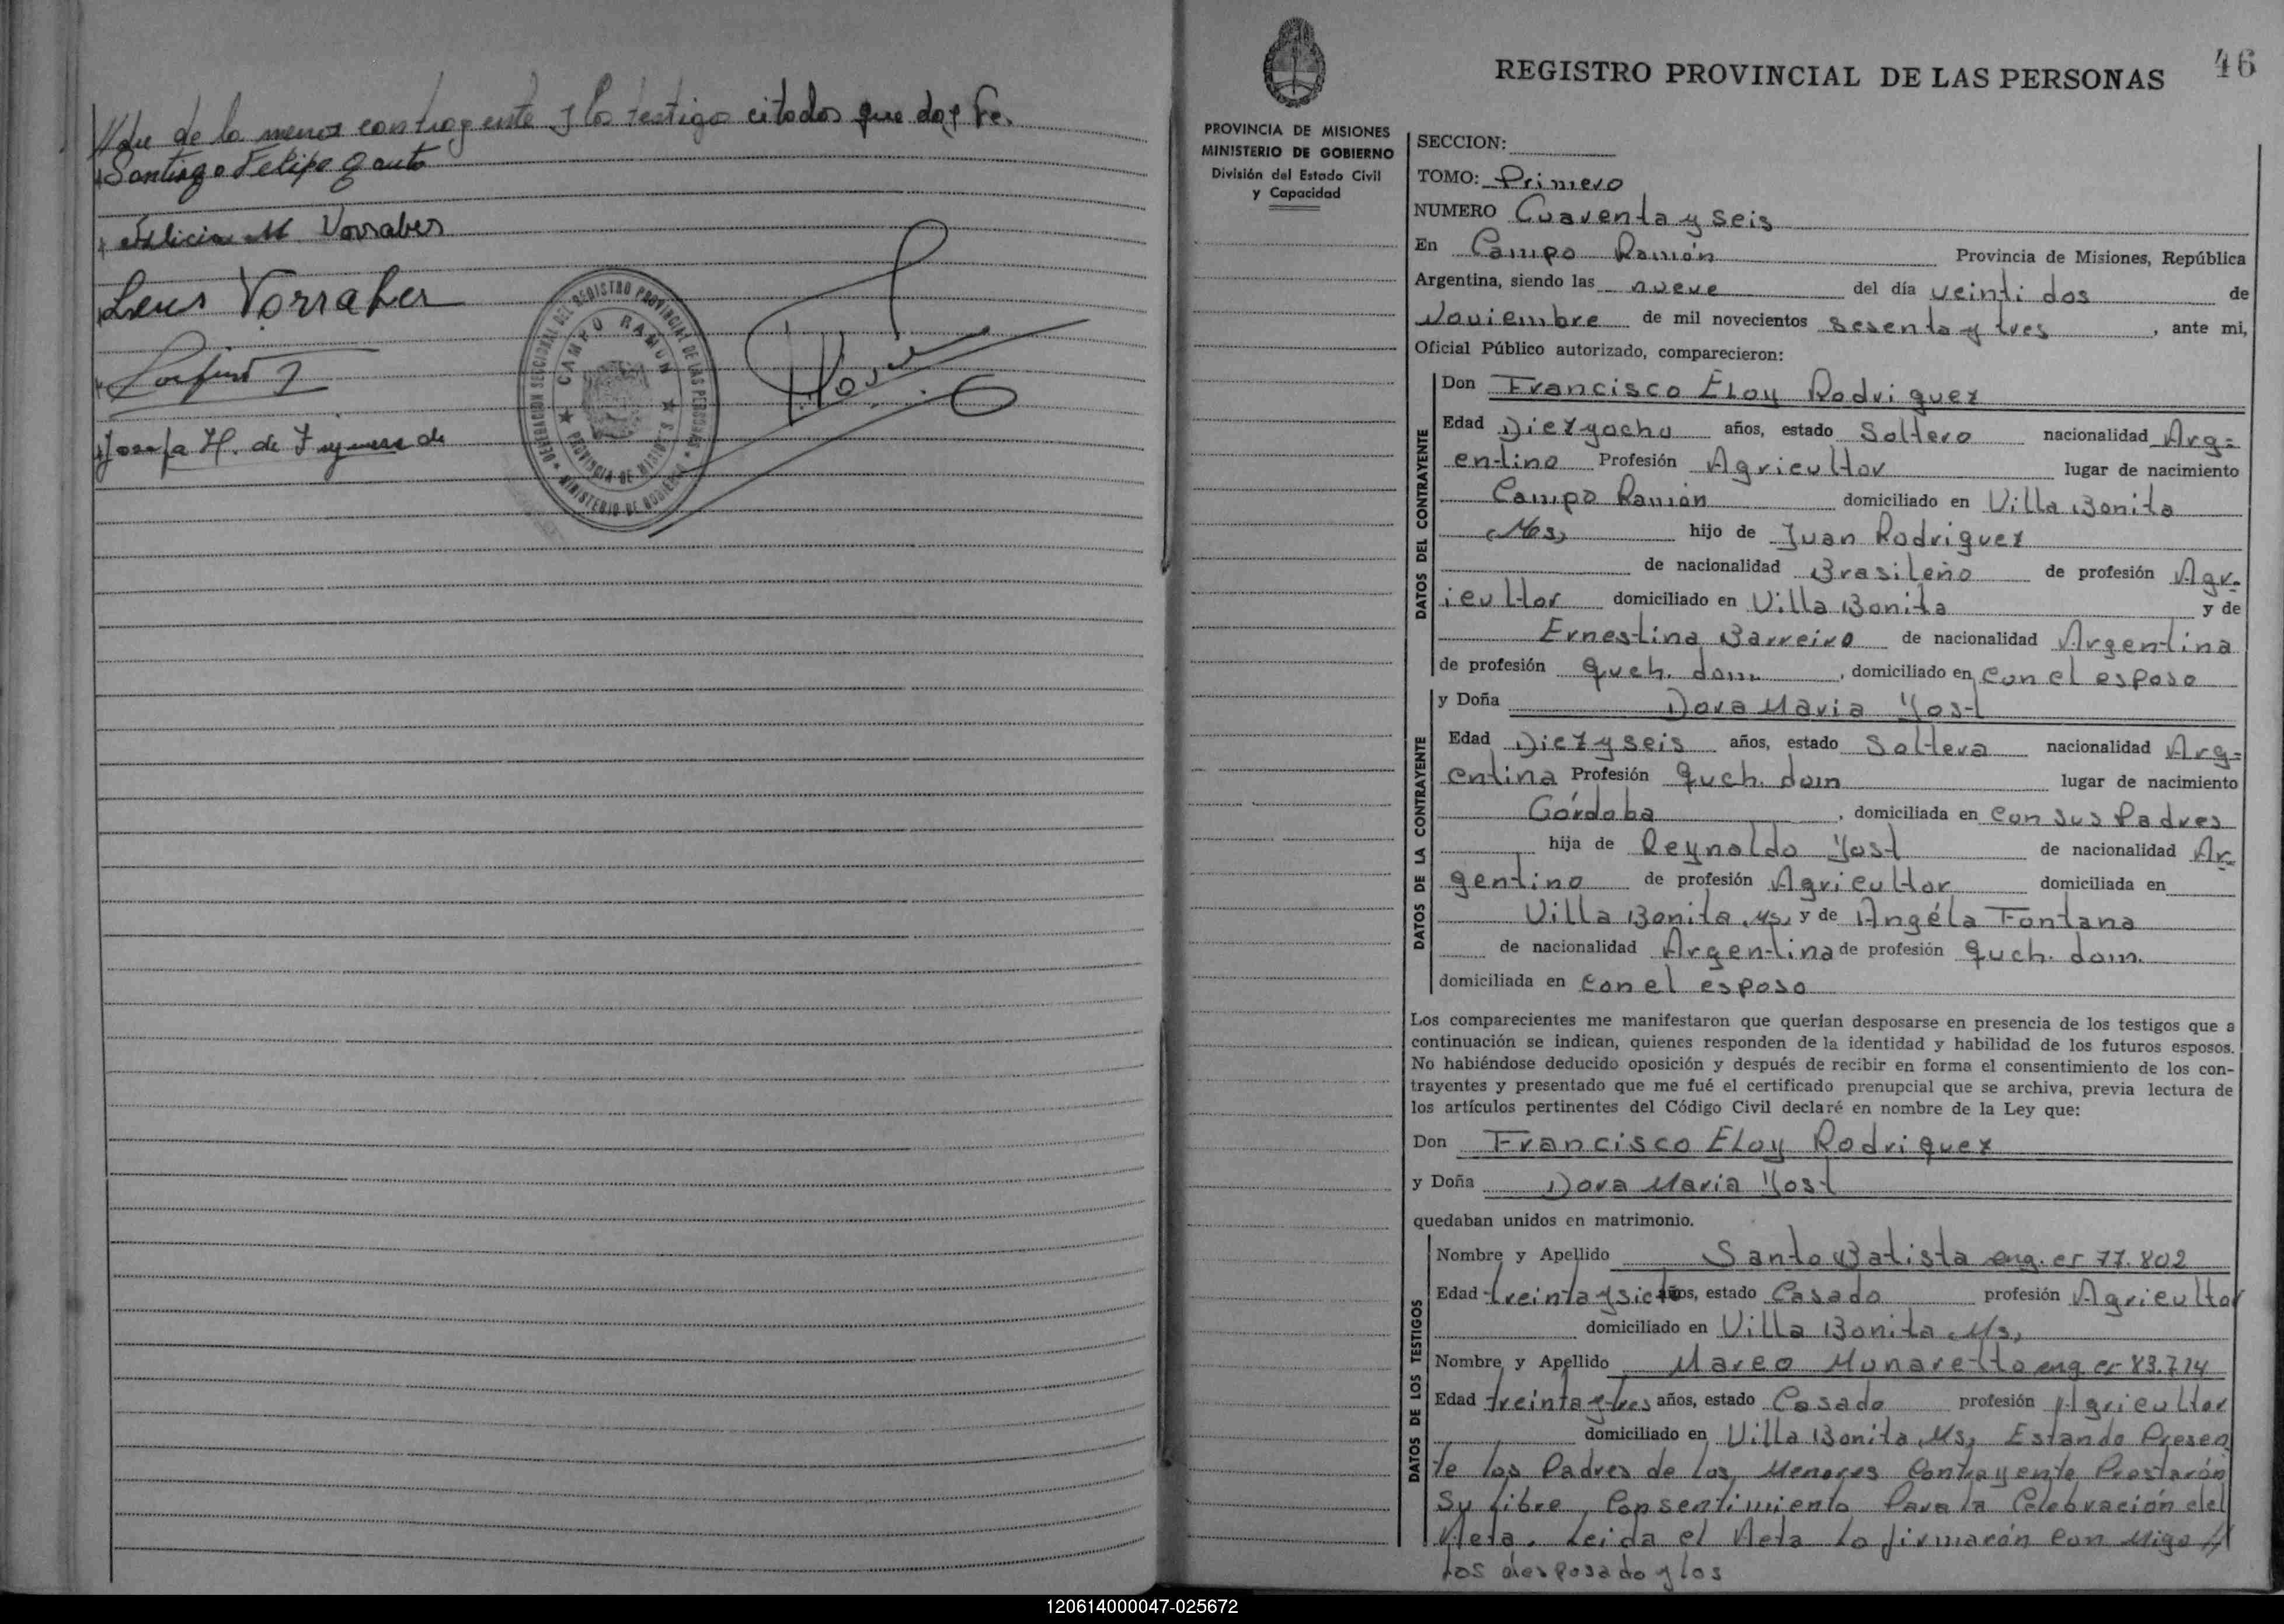 //dre de la menor contrayente y los testigo citados que doy Fe.
Santiago Felipe Gauto
Felicia M Vorraber
Leus Vorraber
Josefa H. de Figueredo
DELEGACION SECCIONAL DEL REGISTRO PROVINCIAL DE LAS PERSONAS
MINISTERIO DE GOBIERNO
CAMPO RAMON
PROVINCIA DE MISIONES
46
REGISTRO PROVINCIAL DE LAS PERSONAS
PROVINCIA DE MISIONES
MINISTERIO DE GOBIERNO
División del Estado Civil
y Capacidad
SECCION:
TOMO: Primero
NUMERO Cuarenta y seis
En Campo Ramón Provincia de Misiones, República
Argentina, siendo las nueve del día veinti dos de
Noviembre de mil novecientos sesenta y tres, ante mi,
Oficial Público autorizado, comparecieron:
DATOS DEL CONTRAYENTE
Don Francisco Eloy Rodriguez
Edad Diezyocho años, estado Soltero nacionalidad Arg=
entino Profesión Agricultor lugar de nacimiento
Campo Ramón domiciliado en Villa Bonita
(Mes) hijo de Juan Rodriguez
de nacionalidad Brasileño de profesión Agr-
icultor domiciliado en Villa Bonita y de
Ernestina Barreiro de nacionalidad Argentina
de profesión Queh. dom. , domiciliado en con el esposo
y Doña Dora Maria Yost
DATOS DE LA CONTRAYENTE
Edad Diezyseis años, estado Soltera nacionalidad Arg=
entina Profesión Queh. dom lugar de nacimiento
Córdoba , domiciliada en con sus Padres
hija de Reynaldo Yost de nacionalidad Ar-
gentino de profesión Agricultor domiciliada en
Villa Bonita, Ms, y de Angéla Fontana
de nacionalidad Argentina de profesión Queh. dom.
domiciliada en con el esposo
Los comparecientes me manifestaron que querían desposarse en presencia de los testigos que a
continuación se indican, quienes responden de la identidad y habilidad de los futuros esposos.
No habiéndose deducido oposición y después de recibir en forma el consentimiento de los con-
trayentes y presentado que me fué el certificado prenupcial que se archiva, previa lectura de
los artículos pertinentes del Código Civil declaré en nombre de la Ley que:
Don Francisco Eloy Rodriguez
y Doña Dora Maria Yost
quedaban unidos en matrimonio.
DATOS DE LOS TESTIGOS
Nombre y Apellido Santo Batista eng. er 77.802
Edad treinta y siete años, estado Casado profesión Agricultor
domiciliado en Villa Bonita Ms,
Nombre y Apellido Marco Munaretto eng er 83.714
Edad treinta y tres años, estado Casado profesión Agricultor
domiciliado en Villa Bonita, Ms, Estando Presen
te los Padres de los Menores Contrayente Prestarón
Su libre Consentimiento Para la Celebración del
Acta. Leida el Acta lo firmarón Con Migo //
los desposado y los
120614000047-025672